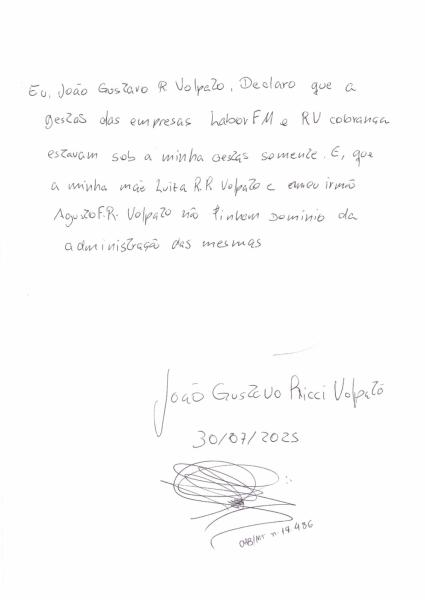 Eu, João Gustavo R Volpato, Declaro que a
gestão das empresas Labor FM e RV cobrança
estavam sob a minha gestão somente. E, que
a minha mãe Luiza R.R Volpato e o meu irmão
Augusto F.R. Volpato não tinham Domínio da
administração das mesmas
João Gustavo Ricci Volpato
30/07/2025
OAB/MT n. 14.486